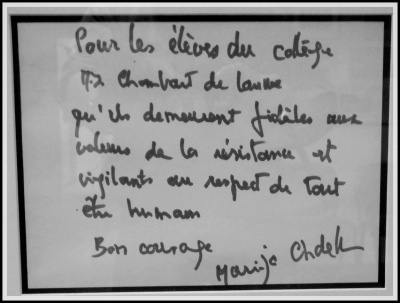 Pour les élèves du collège
MJ Chombart de Lauwe
qu'ils demeurent fidèles aux
valeurs de la résistance et
vigilants au respect de tout
être humain
Bon courage
Marija Chdek